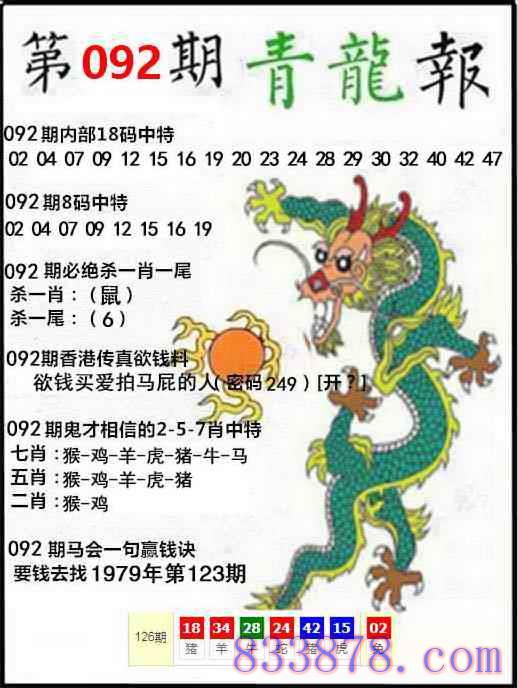 第092期青龍報
092期内部18码中特
02 04 07 09 12 15 16 19 20 23 24 28 29 30 32 40 42 47
092期8码中特
02 04 07 09 12 15 16 19
092期必绝杀一肖一尾
杀一肖：（鼠）
杀一尾：（6）
092期香港传真欲钱料
欲钱买爱拍马屁的人(密码249）[开？]
092期鬼才相信的2-5-7肖中特
七肖：猴-鸡-羊-虎-猪-牛-马
五肖：猴-鸡-羊-虎-猪
二肖：猴-鸡
092期马会一句赢钱诀
要钱去找1979年第123期
126期 18 34 28 24 42 15 02
猪 羊 牛 蛇 猪 虎 兔
833878.com